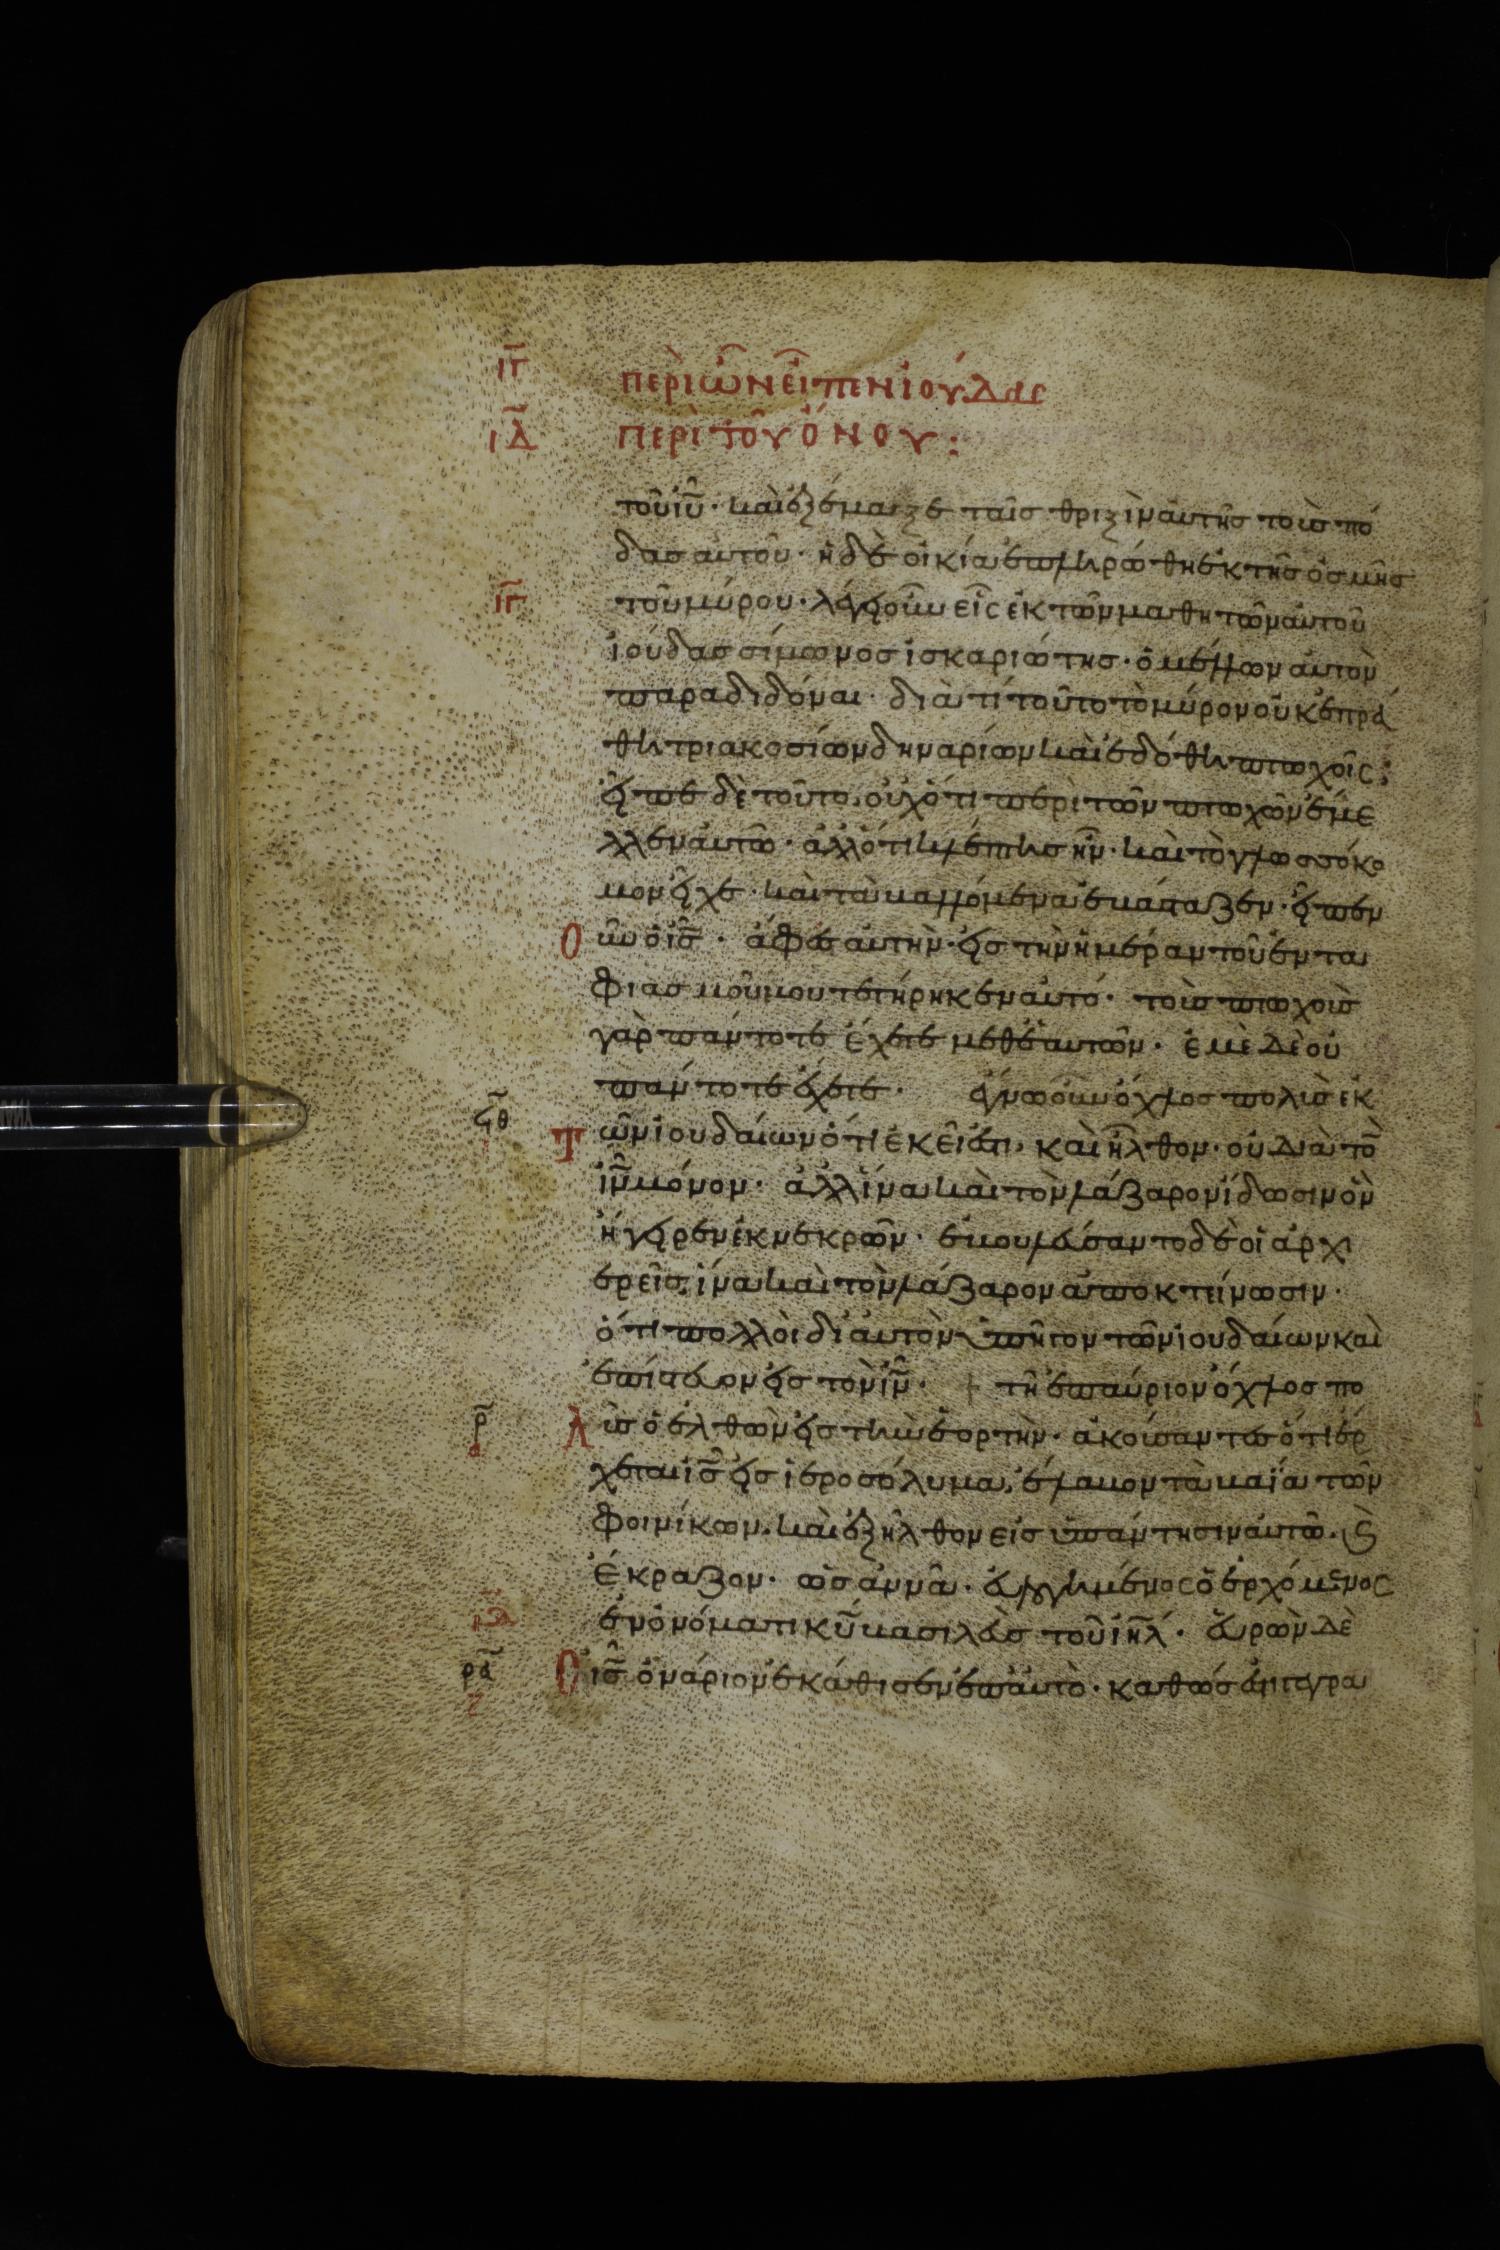 ιγ περὶ ὧν εἶπεν ἰούδας
ιδ περὶ τοῦ ὄνου:
τοῦ ἰυ· καὶ ἐξέμαξε ταῖς θριξὶν αὐτῆς τοὺς πό
δας αὐτοῦ· ἡ δὲ οἰκία ἐπληρώθη ἐκ τῆς ὀσμῆς
ιγ τοῦ μύρου· λέγει οὖν εἷς ἐκ τῶν μαθητῶν αὐτοῦ
ἰούδας σίμωνος ἰσκαριώτης· ὁ μέλλων αὐτὸν
παραδιδόναι· διὰ τί τοῦτο τὸ μύρον οὐκ ἐπρά
θη τριακοσίων δηναρίων καὶ ἐδόθη πτωχοῖς;
εἶπε δὲ τοῦτο, οὐχ ὅτι περὶ τῶν πτωχῶν ἔμε
λλεν αὐτῶ· ἀλλ ὅτι κλέπτης ἦν· καὶ τὸ γλωσσόκο
μον εἶχε· καὶ τὰ βαλλόμενα ἐβάσταζεν· εἶπεν
οὖν ὁ ις· ἄφες αὐτὴν· εἰς τὴν ἡμέραν τοῦ ἐντα
φιασμοῦ μου τετήρηκεν αὐτό· τοὺς πτωχοὺς
γὰρ πάντοτε ἔχετε μεθ ἑαυτῶν· ἐμὲ δὲ οὐ
πάντοτε ἔχετε· ἔγνω οὖν ὄχλος πολὺς ἐκ
ϟθ τῶν ἰουδαίων ὅτι ἐκεῖ ἐστι, καὶ ἦλθον· οὐ διὰ τὸ
ιν μόνον· ἀλλ ἵνα καὶ τὸν λάζαρον ἴδωσιν ὃν
ἤγειρεν ἐκ νεκρῶν· ἐβουλεύσαντο δὲ οἱ ἀρχι
ερεῖς, ἵνα καὶ τὸν λάζαρον ἀποκτείνωσιν·
ὅτι πολλοὶ δι αὐτὸν ὑπῆγον τῶν ἰουδαίων καὶ
ἐπίστευον εἰς τὸν ιν· + τῇ ἐπαύριον ὄχλος πο
ρ α λὺς ὁ ἐλθὼν εἰς τὴν ἑορτὴν· ἀκούσαντες ὅτι ἔρ
χεται ις εἰς ἱεροσόλυμα, ἔλαβον τὰ βαΐα τῶν
φοινίκων, καὶ ἐξῆλθον εἰς ὑπάντησιν αὐτῶ· καὶ
ἔκραζον· ὡσαννά· εὐλογημένος ὁ ἐρχόμενος
ιδ ἐν ὀνόματι κυ βασιλεὺς τοῦ ιηλ· εὑρὼν δὲ
ρα ζ ὁ ις ὀνάριον ἐκάθισεν ἐπ αὐτὸ· καθώς ἐστι γεγρα